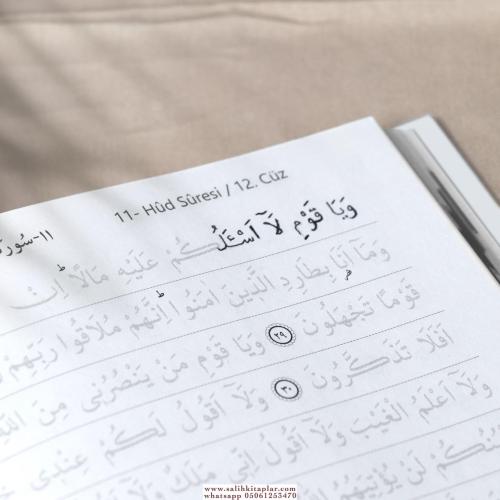 11- Hûd Sûresi / 12. Cüz
١١-سُورَة
وَيَا قَوْمِ لَٓا اَسْـَٔلُكُمْ عَلَيْهِ مَالًاۜ اِنْ
وَمَٓا اَنَا۬ بِطَارِدِ الَّذ۪ينَ اٰمَنُواۜ اِنَّهُمْ مُلَاقُوا رَبِّهِمْ
قَوْمًا تَجْهَلُونَ ﴿٢٩﴾ وَيَا قَوْمِ مَنْ يَنْصُرُن۪ي مِنَ
اَفَلَا تَذَكَّرُونَ ﴿٣٠﴾ وَلَٓا اَقُولُ لَكُمْ عِنْد۪ي
وَلَٓا اَعْلَمُ الْغَيْبَ وَلَٓا اَقُولُ
لَنْ يُؤْتِيَهُمُ
www.salihkitaplar.com
whatsapp 05061253470